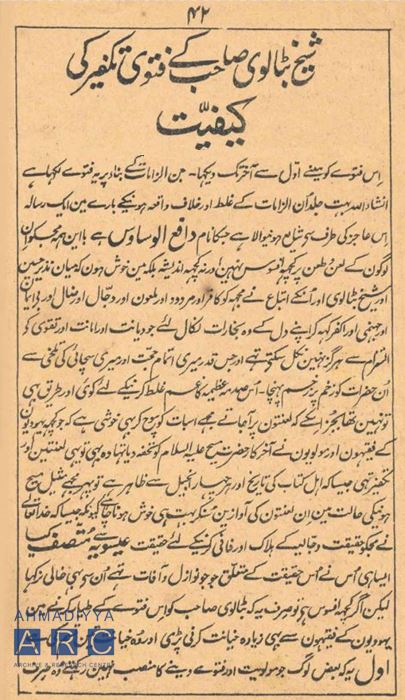 ۴۲
شیخ بٹالوی صاحب کے فتویٰ تکفیر کی
کیفیت
اس فتوے کو مینے اول سے آخر تک دیکھا۔ جن الزامات کے بنا پر یہ فتوے لکھا ہے
انشاء اللہ بہت جلد ان الزامات کے غلط اور خلاف واقعہ ہونیکے بارے مین ایک رسالہ
اس عاجز کی طرف سے شایع ہونیوالا ہے جسکا نام دافع الوساوس ہے با این ہمہ مجھکو ان
لوگون کے لعن و طعن پر کچھہ افسوس نہین اور نہ کچھہ اندیشہ بلکہ مین خوش ہون کہ میان نذیر حسین
اور شیخ بٹالوی اور انکے اتباع نے مجھہ کو کافر اور مردود اور ملعون اور دجال اور ضال اور بے ایمان
اور جہنمی اور اکفر کہکر اپنے دل کے وہ بخارات نکال لئے جو دیانت اور امانت اور تقویٰ کے
التزام سے ہرگز نہین نکل سکتے تھے اور جس قدر میری اتمام حجت اور میری سچائی کی تلخی سے
ان حضرات کو زخم پر زخم پہنچا۔ اُس صدمہ عظیمہ کا غم غلط کرنیکے لئے کوئی اور طریق بھی
تو نہین تھا بجز اسکے کہ لعنتون پر آجاتے مجھے اسبات کو سوچ کر بھی خوشی ہے کہ جو کچھہ یہودیون
کے فقیہون اور مولویون نے آخر کار حضرت مسیح علیہ السلام کو تحفہ دیا تھا وہ بھی تو یہی لعنتین اور
تکفیر تھی جیسا کہ اہل کتاب کی تاریخ اور ہر چہار انجیل سے ظاہر ہے تو پھر مجھے مثیل مسیح
ہونیکی حالت مین ان لعنتون کی آوازین سنکر بہت ہی خوش ہونا چاہیئے کیونکہ جیسا کہ خدا تعالےٰ
نے مجھکو حقیقت دجالیہ کے ہلاک اور فانی کرنیکے لئے حقیقت عیسویہ سے متصف کیا
ایسا ہی اُس نے اُس حقیقت کے متعلق جو جو نوازل و آفات تھے اُن سے بھی خالی نرکھا
لیکن اگر کچھہ افسوس ہے تو صرف یہ کہ بٹالوی صاحب کو اس فتوے کے طیار کرنے مین
یہودیون کے فقیہون سے بھی زیادہ خیانت کرنی پڑی اور وہ خیانت
اول یہ کہ بعض لوگ جو مولویت اور فتوے دینے کا منصب نہین رکھتے وہ صرف
AHMADIYYA
ARC
ARCHIVE & RESEARCH CENTRE